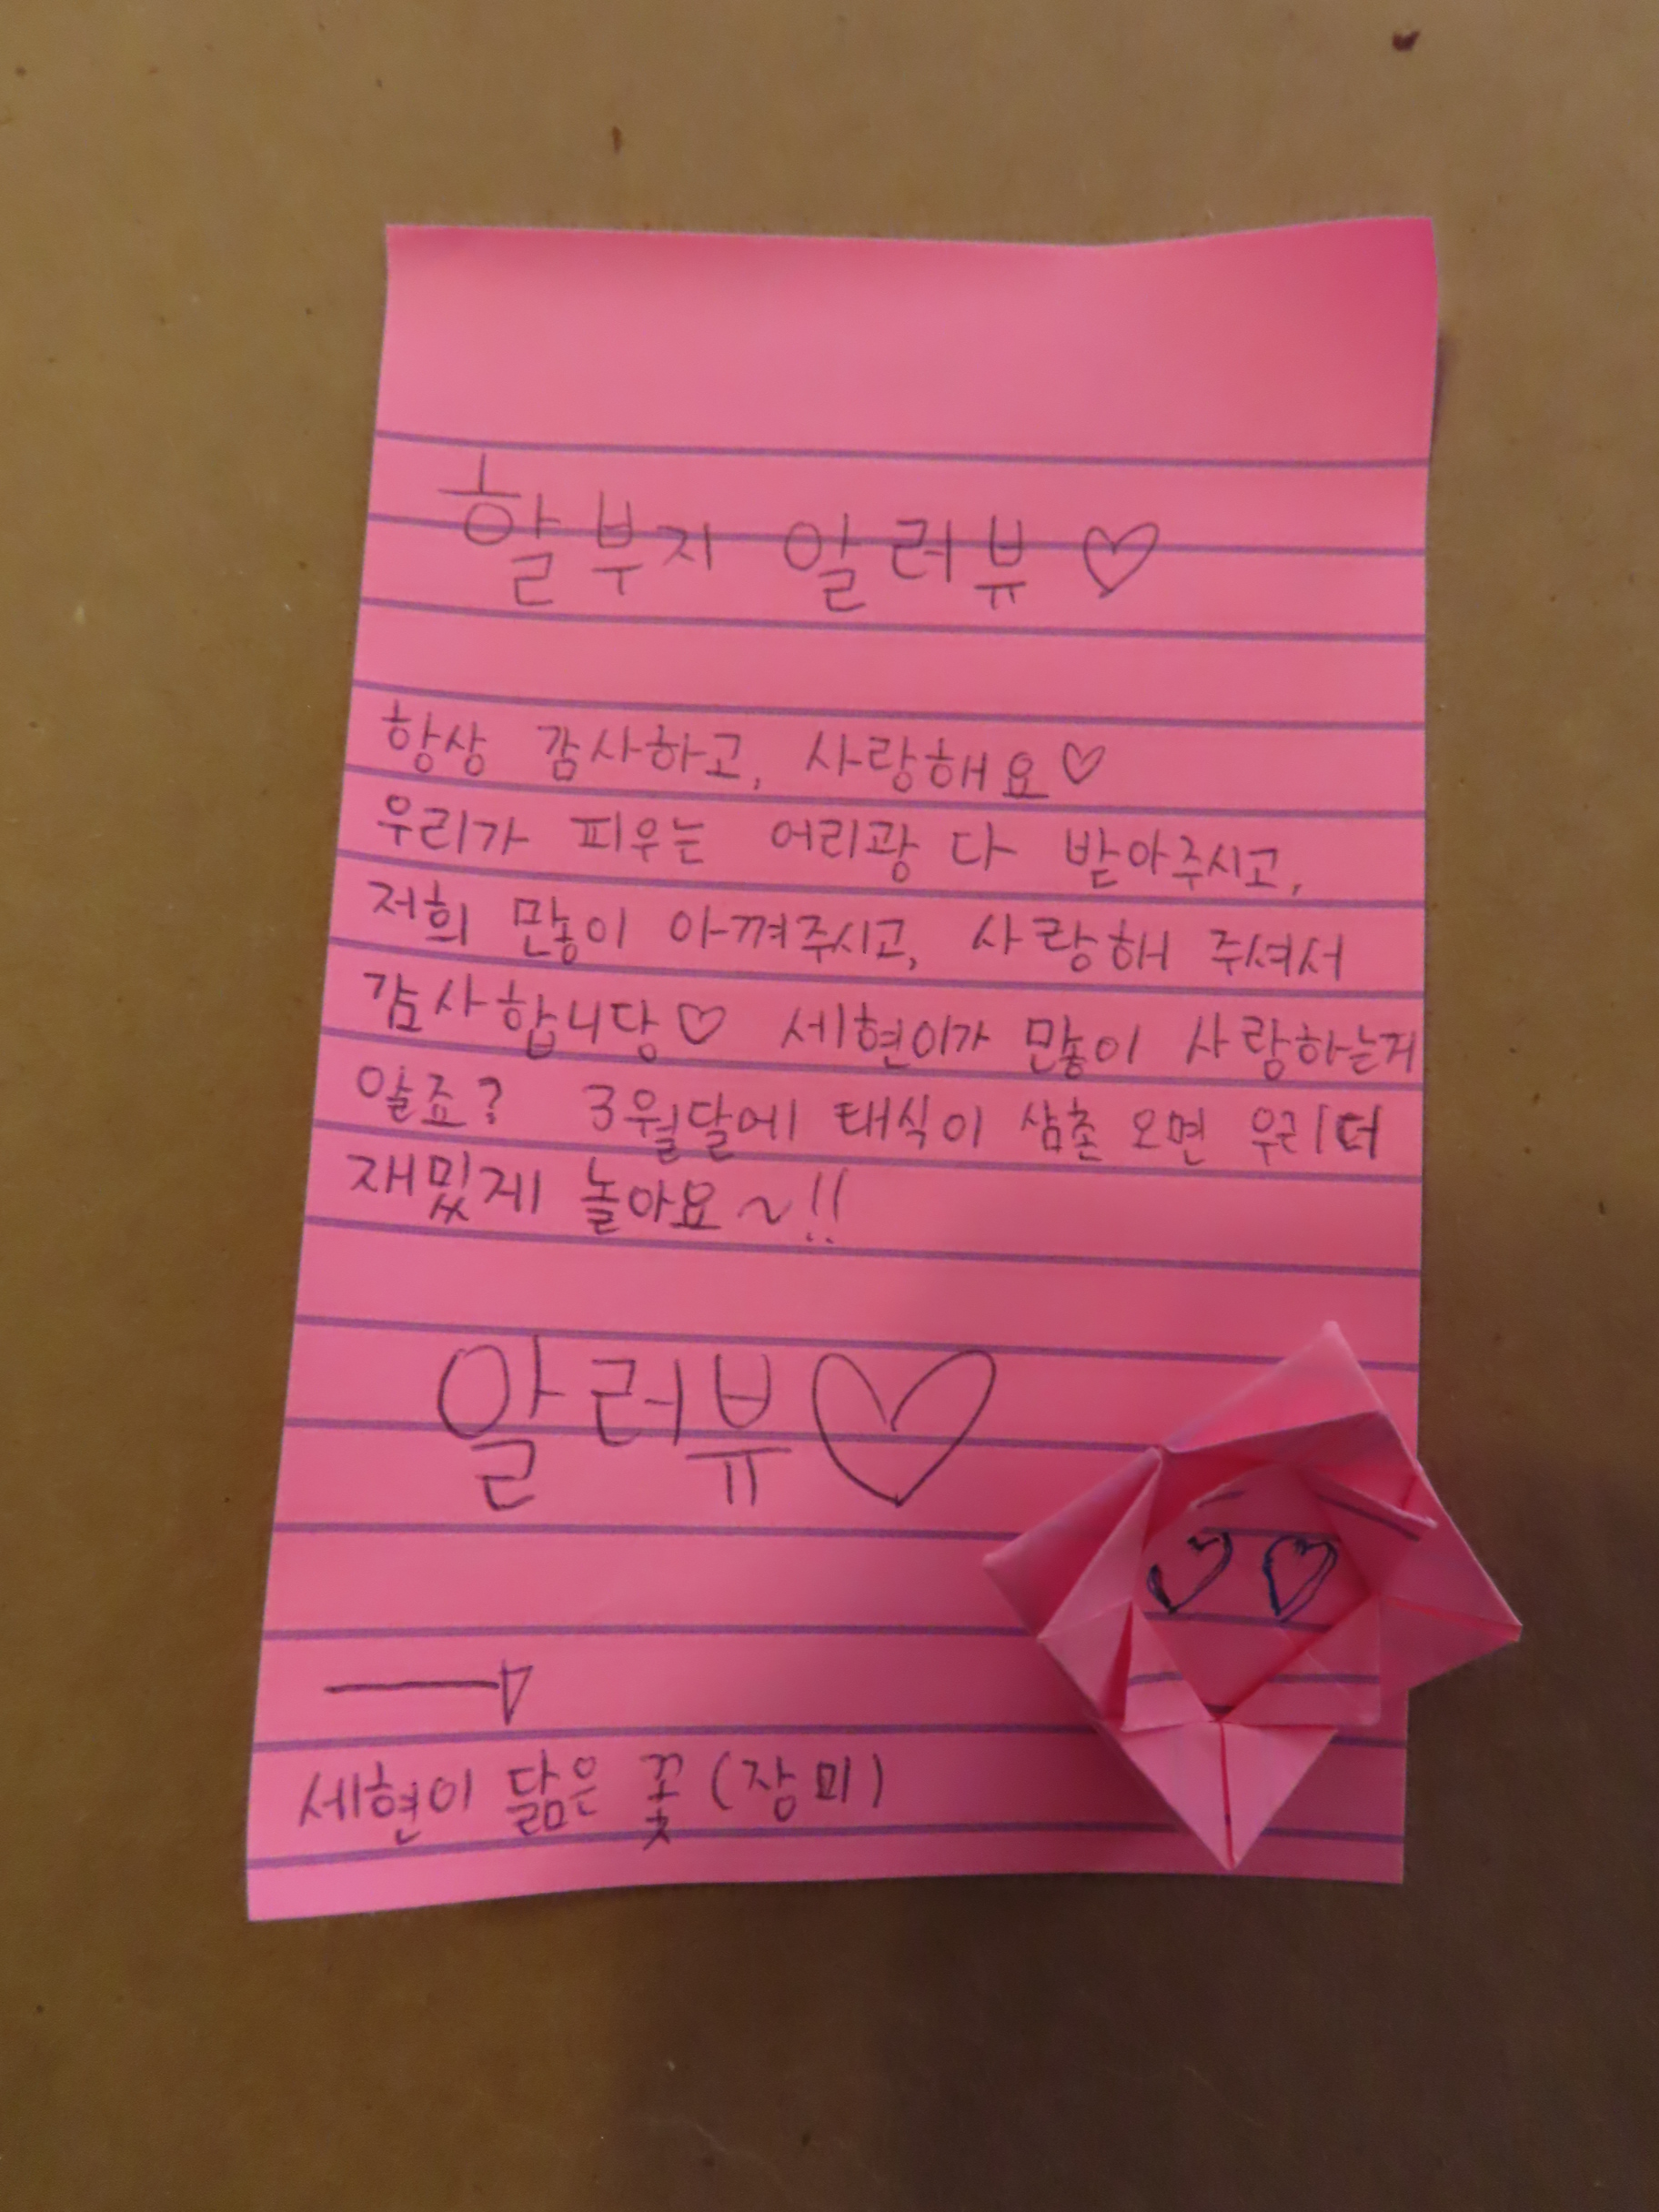 할부지 알러뷰♡
항상 감사하고, 사랑해요♡
우리가 피우는 어리광 다 받아주시고,
저희 많이 아껴주시고, 사랑해 주셔서
감사합니당♡ 세현이가 많이 사랑하는거
알죠? 3월달에 태식이 삼촌 오면 우리 더
재밌게 놀아요~!!
알러뷰♡
세현이 닮은 꽃(장미)